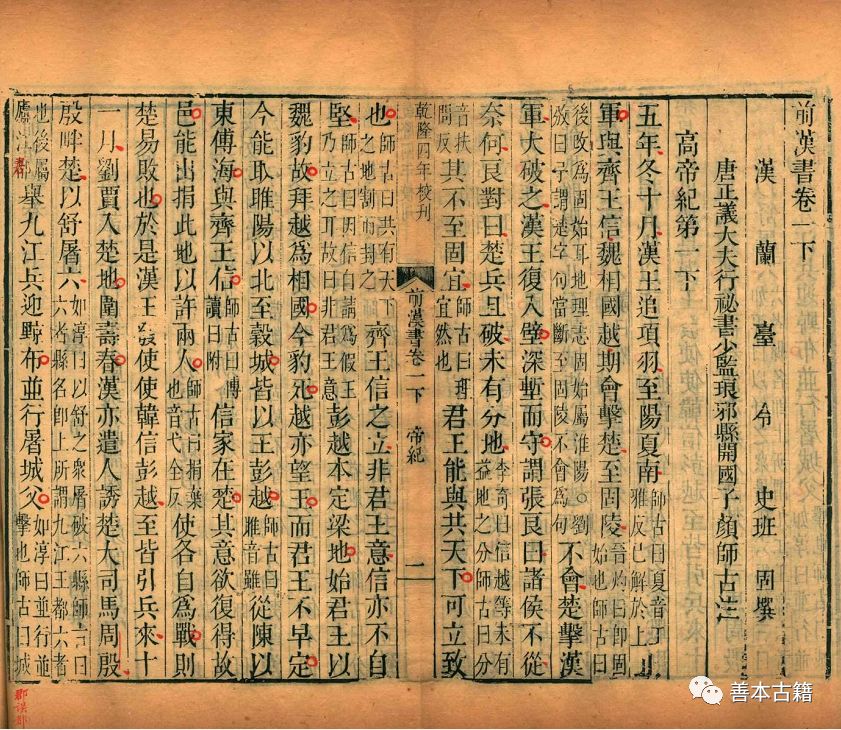 前漢書卷一下
漢蘭臺令史班固撰
唐正議大夫行祕書少監琅邪縣開國子顏師古注
高帝紀第一下
五年冬十月漢王追項羽至陽夏南師古曰夏音工雅反已解於上
軍與齊王信魏相國越期會擊楚至固陵晉灼曰即固始也師古曰
後改爲固始耳地理志固始屬淮陽○劉攽曰予謂遶字句當斷至固陵不會爲句不會楚擊漢
軍大破之漢王復入壁深塹而守謂張良曰諸侯不從
奈何良對曰楚兵且破未有分地李奇曰信越等未有益地之分師古曰分
音扶問反其不至固宜師古曰理宜然也君王能與共天下可立致
乾隆四年校刊
前漢書卷一下 帝紀 一
也師古曰共有天下之地割而封之齊王信之立非君王意信亦不自
堅師古曰因信自請爲假王乃立之耳故曰非君王意彭越本定梁地始君王以
魏豹故拜越爲相國今豹死越亦望王而君王不早定
今能取睢陽以北至穀城皆以王彭越師古曰睢音雖從陳以
東傅海與齊王信師古曰傅讀曰附信家在楚其意欲復得故
邑能出捐此地以許兩人師古曰捐棄也音弋全反使各自爲戰則
楚易敗也於是漢王發使使韓信彭越至皆引兵來十
一月劉賈入楚地圍壽春漢亦遣人誘楚大司馬周殷
殷畔楚以舒屠六如淳曰以舒之衆屠破六縣師古曰六者縣名即上所謂九江王都六者
也後屬廬江部舉九江兵迎黥布並行屠城父如淳曰並行並擊也師古曰城
郡誤部
善本古籍